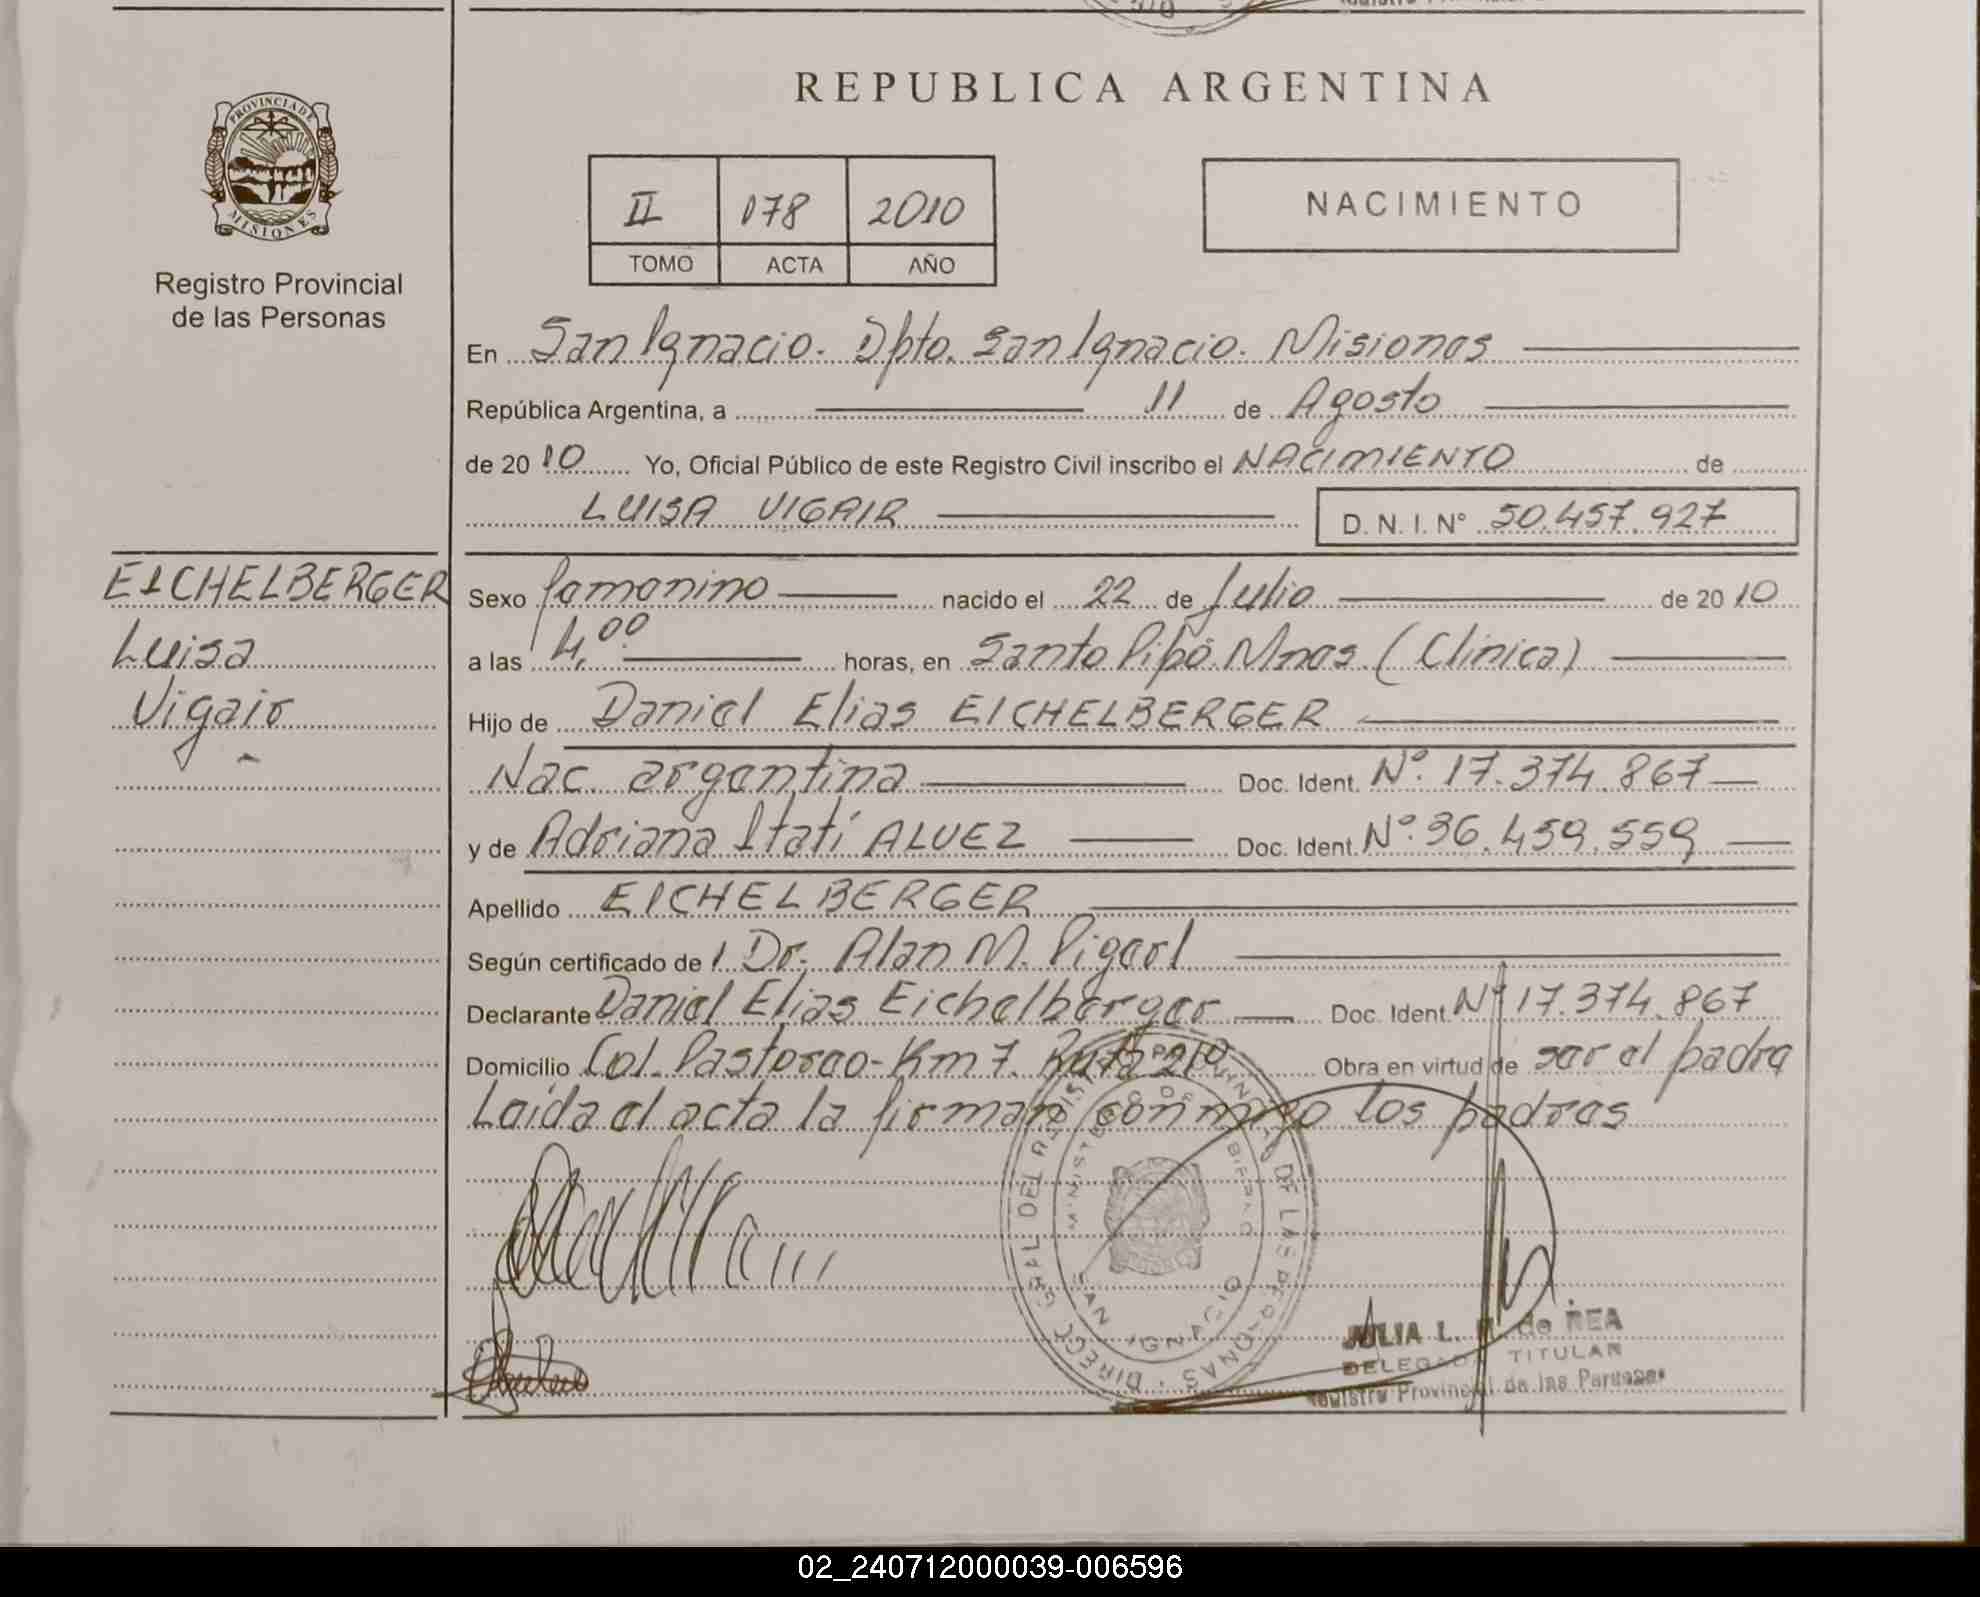 REPUBLICA ARGENTINA
PROVINCIA DE
MISIONES
Registro Provincial
de las Personas
II 178 2010
TOMO ACTA AÑO
NACIMIENTO
En San Ignacio. Dpto. San Ignacio. Misiones
República Argentina, a 11 de Agosto
de 2010 Yo, Oficial Público de este Registro Civil inscribo el NACIMIENTO de
LUISA VIGAIR D. N. I. N° 50.457.927
EICHELBERGER
Luisa
Vigair
Sexo femenino nacido el 22 de Julio de 2010
a las 4,00 horas, en Santo Pipó. Mnes. (Clínica)
Hijo de Daniel Elias EICHELBERGER
Nac. argentina Doc. Ident. N°. 17.374.867
y de Adriana Itatí ALVEZ Doc. Ident. N°. 36.459.559
Apellido EICHELBERGER
Según certificado de l Dr. Alan M. Pigerl
Declarante Daniel Elias Eichelberger Doc. Ident. N° 17.374.867
Domicilio Col. Pastoreo - Km 7. Ruta 210 Obra en virtud de ser el padre
Leída el acta la firman conmigo los padres
DIRECC. GRAL DEL REGIST. PROVINCIAL DE LAS PERSONAS
MINISTERIO DE GOBIERNO
SAN IGNACIO
JULIA L. de REA
DELEGADA TITULAR
Registro Provincial de las Personas
02_240712000039-006596